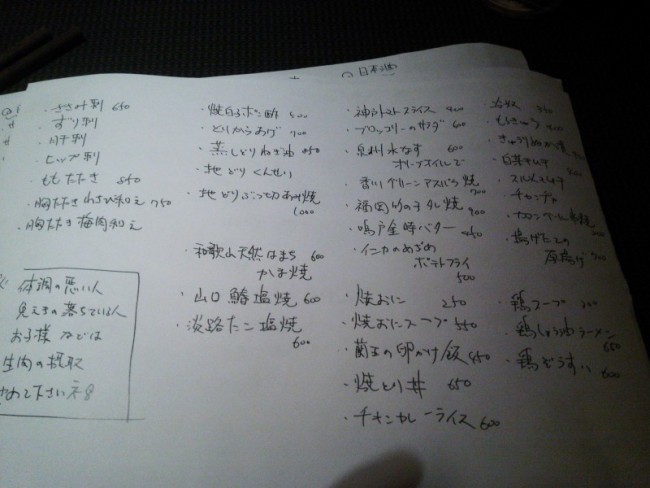 日本酒
・ささみ刺 650
・すり刺
・肝刺
・ヒップ刺
・ももたたき 850
・胸たたきわさび和え 750
・胸たたき梅肉和え
体調の悪い人
免疫の落ちている人
お子様などは
生肉の摂取
やめて下さいネ
・焼白子ポン酢 500
・とりからあげ 700
・蒸しどりねぎ油 850
・地どりくんせい
・地どりぶつ切あぶり焼
1000
・和歌山天然はまち 600
かま焼
・山口鰆塩焼 600
・淡路たこ塩焼
600
・神戸トマトスライス 400
・ブロッコリーのサラダ 600
・泉州水なす 600
オリーブオイルで
・香川グリーンアスパラ焼 700
・福岡竹の子タレ焼 700
・鳴戸金時バター
・インカのめざめ
ポテトフライ
500
・焼おに 250
・焼おにスープ 550
の卵かけ飯 450
・焼とり丼 650
・チキンカレーライス 600
・もろきゅう
・チャンヂャ
・塩げたの
厚揚げ
・鶏スープ
・鶏しょうゆラーメン
650
・鶏ぞうすい 600